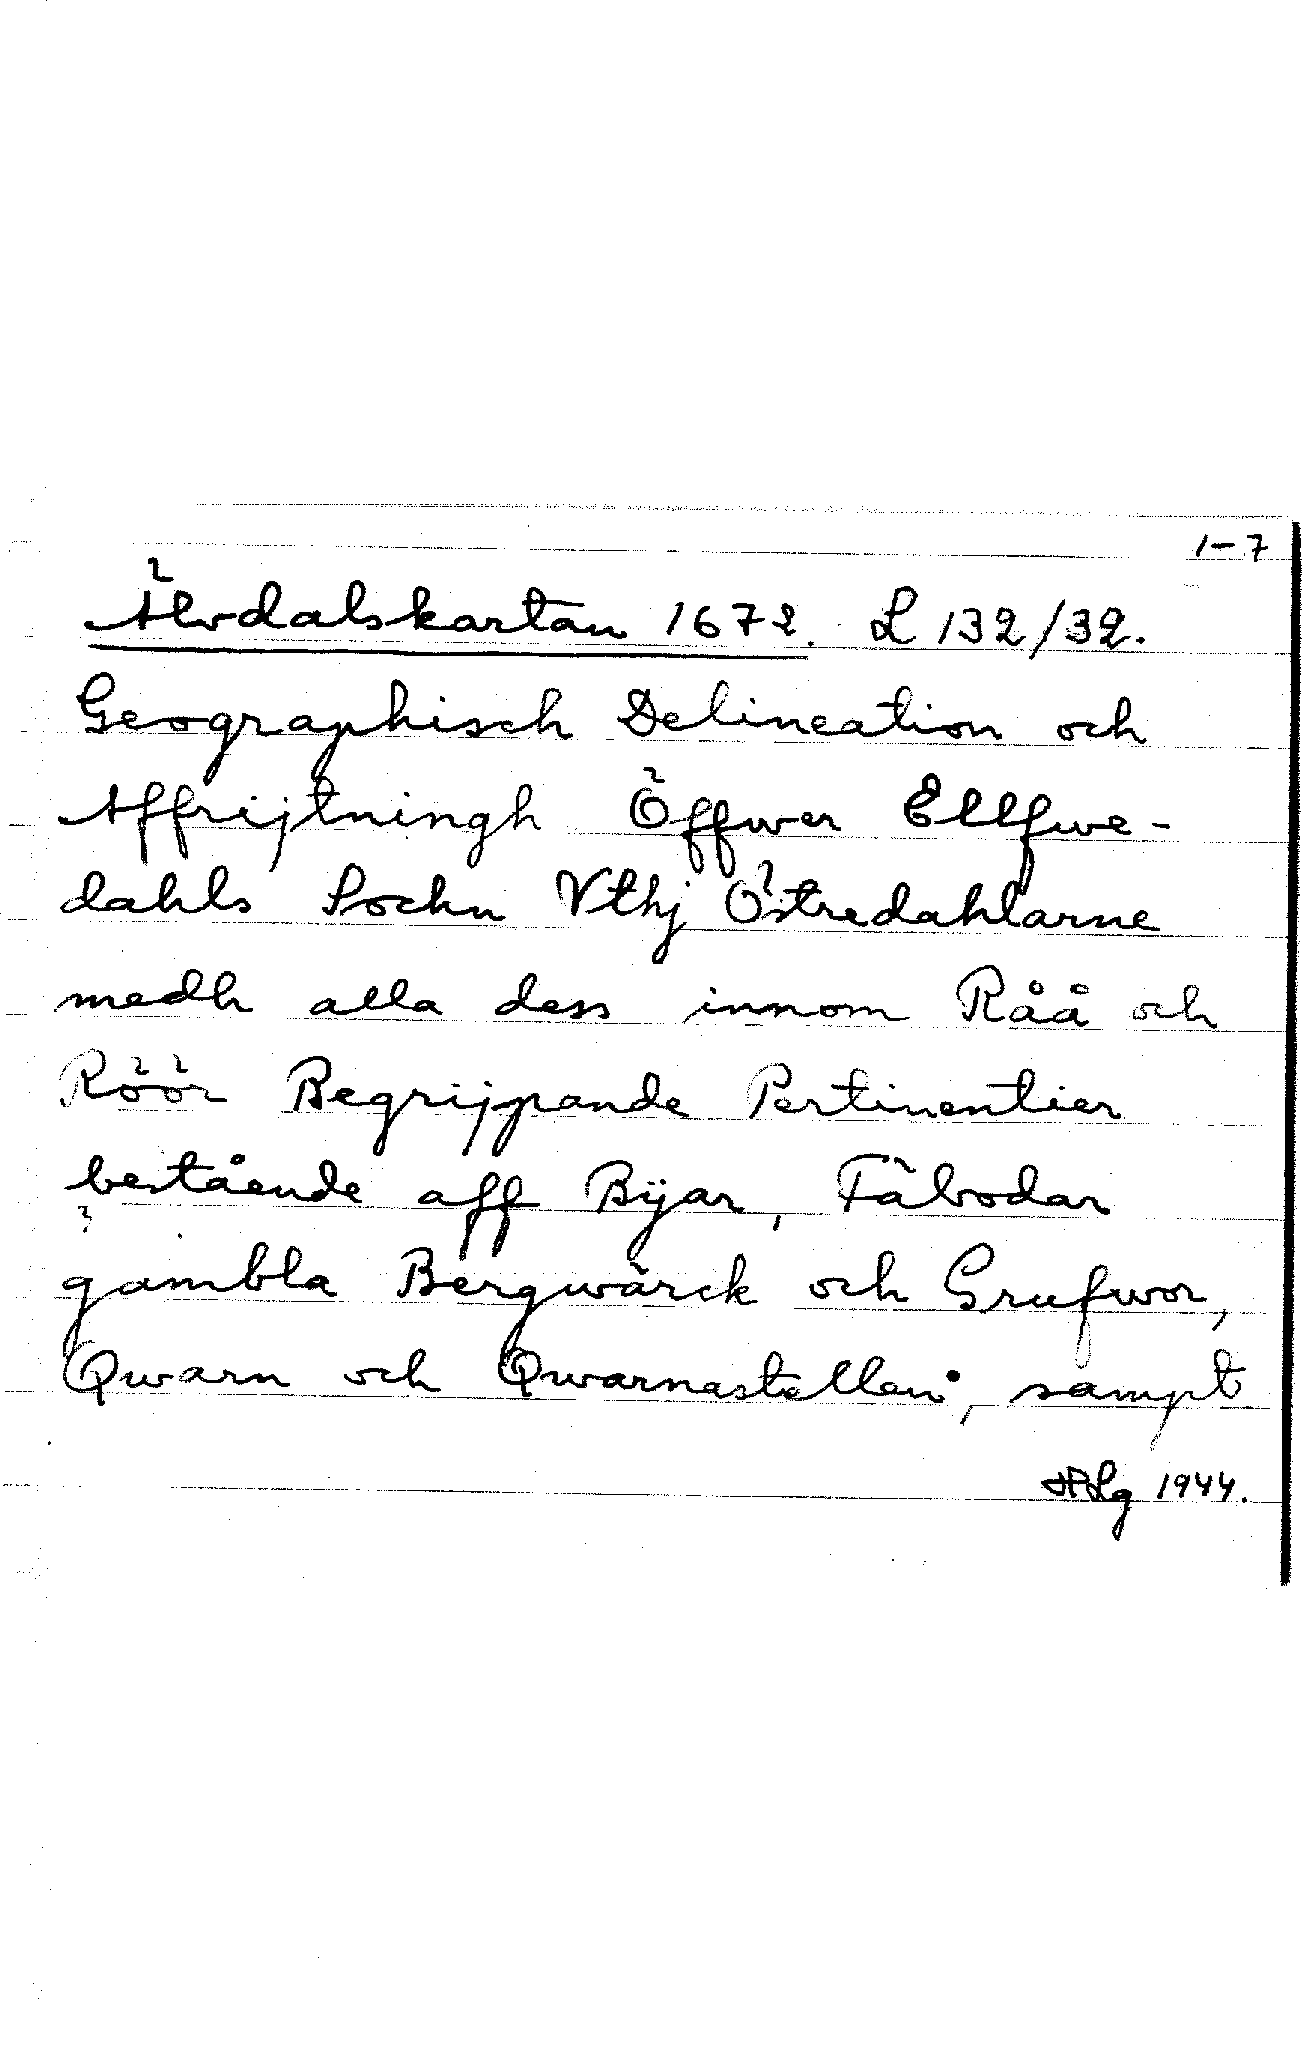 1-7
Älvdalskartan 1672. L 132/32.
Geographisch Delineation och
Affrijtningh Öffwer Ellfwe-
dahls Sochn Vthj Östredahlarne
medh alla dess innom Råå och
Röör Begrijpande Pertinentier
bestående aff Bÿar, Fäbodar
gambla Bergwärck och Grufwor,
Qwarn och Qwarnastellen, sampt
1944.